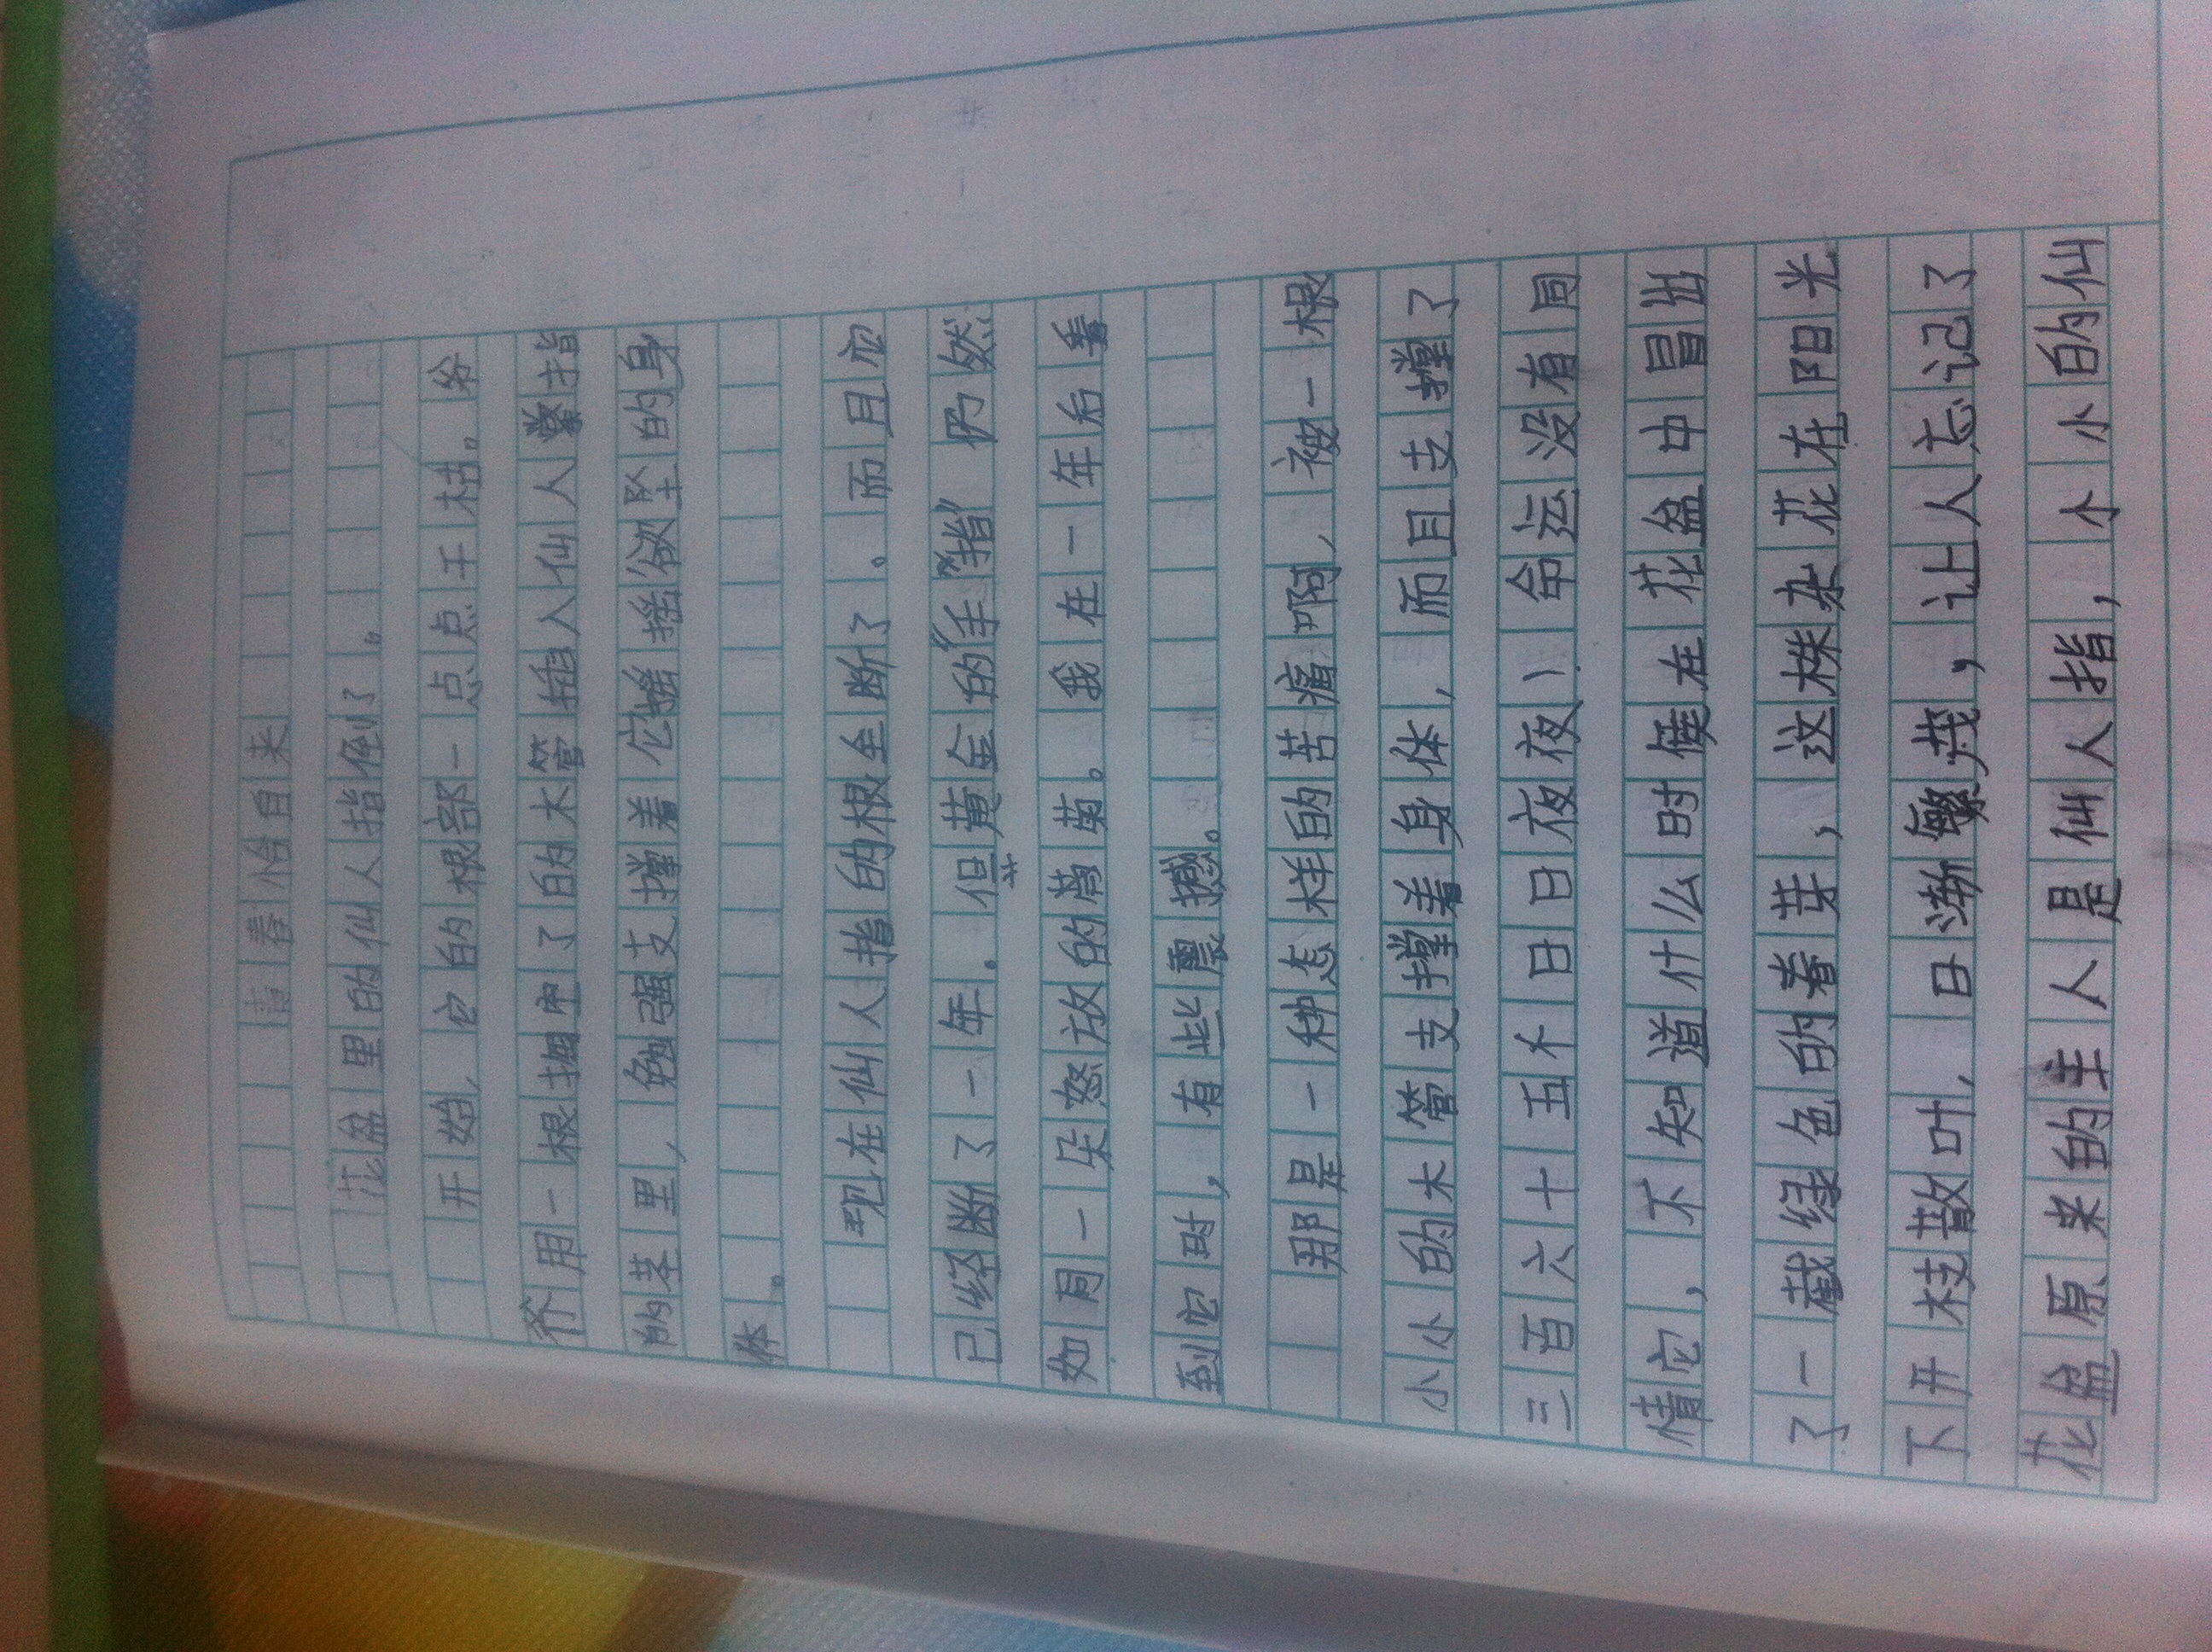 青春恰自来
花盆里的仙人指倒了。
开始,它的根部一点点干枯。爷
爷用一根掏空了的木管插入仙人掌指
的茎里,勉强支撑着它摇摇欲坠的身
体。
现在仙人指的根全断了。而且应
已经断了一年.但黄金的“手指”仍然
如同一朵怒放的菊菊。我在一年后看
到它时,有些震撼。
那是一种怎样的苦痛啊,被一根
小小的木管支撑着身体,而且支撑了
三百六十五个日日夜夜!命运没有同
情它,不知道什么时候在花盆中冒出
了一截绿色的着芽,这株杂花在阳光
下开枝散叶,日渐繁茂,让人忘记了
花盆原来的主人是仙人指,小小的仙